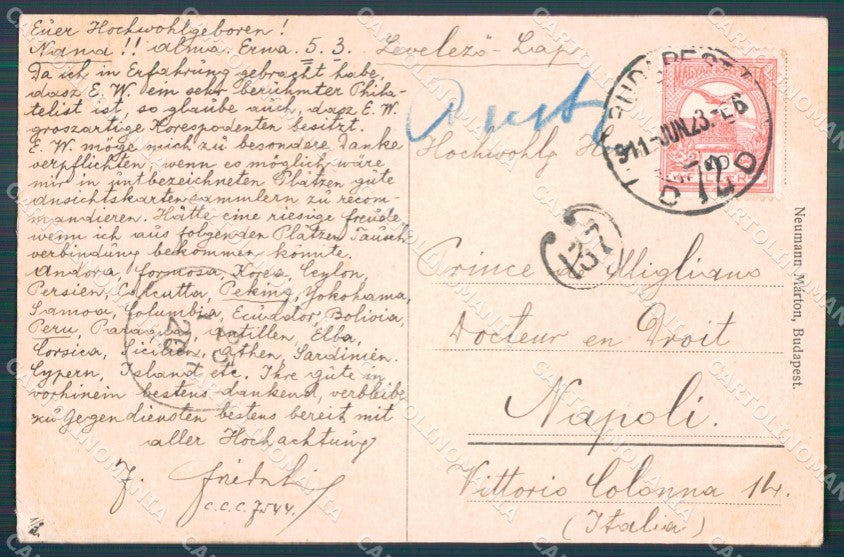 Euer Hochwohlgeboren!
Nama!! alma. Erma. 5. 3.
Levelező-Lap
Da ich in Erfahrung gebracht habe,
dasz E. W. ein sehr berühmter Phila-
telist ist, so glaube auch, dasz E. W.
groszartige Korespodenten besitzt.
E. W. möge mich zu besondere Danke
verpflichten, wenn es möglich wäre
mir in untbezeichneten Plätzen gute
Ansichtskartensammlern zu recom-
mandieren. Hätte eine riesige freude
wenn ich aus folgenden Plätzen Tausch
verbindung bekommen könnte.
Andora, Formosa, Korea, Ceylon,
Persien, Calcutta, Peking, Yokohama,
Samoa, Columbia, Ecuador, Bolivia,
Peru, Paragua, Antillen, Elba,
Corsica, Sicilien, Athen, Sardinien.
Cypern, Island etc. Ihre güte in
vorhinein bestens dankend, verbleibe
zu Gegendiensten bestens bereit mit
aller Hochachtung
J.
C.C.C. 7544.
BUDAPEST
911-JUN.23.-E6
12 D
MAGYAR
237
Hochwohlg H
Prince de Migliano
Docteur en Droit
Napoli.
Vittorio Colonna 14.
(Italia)
Neumann Márton, Budapest.
CARTOLINOMANIA